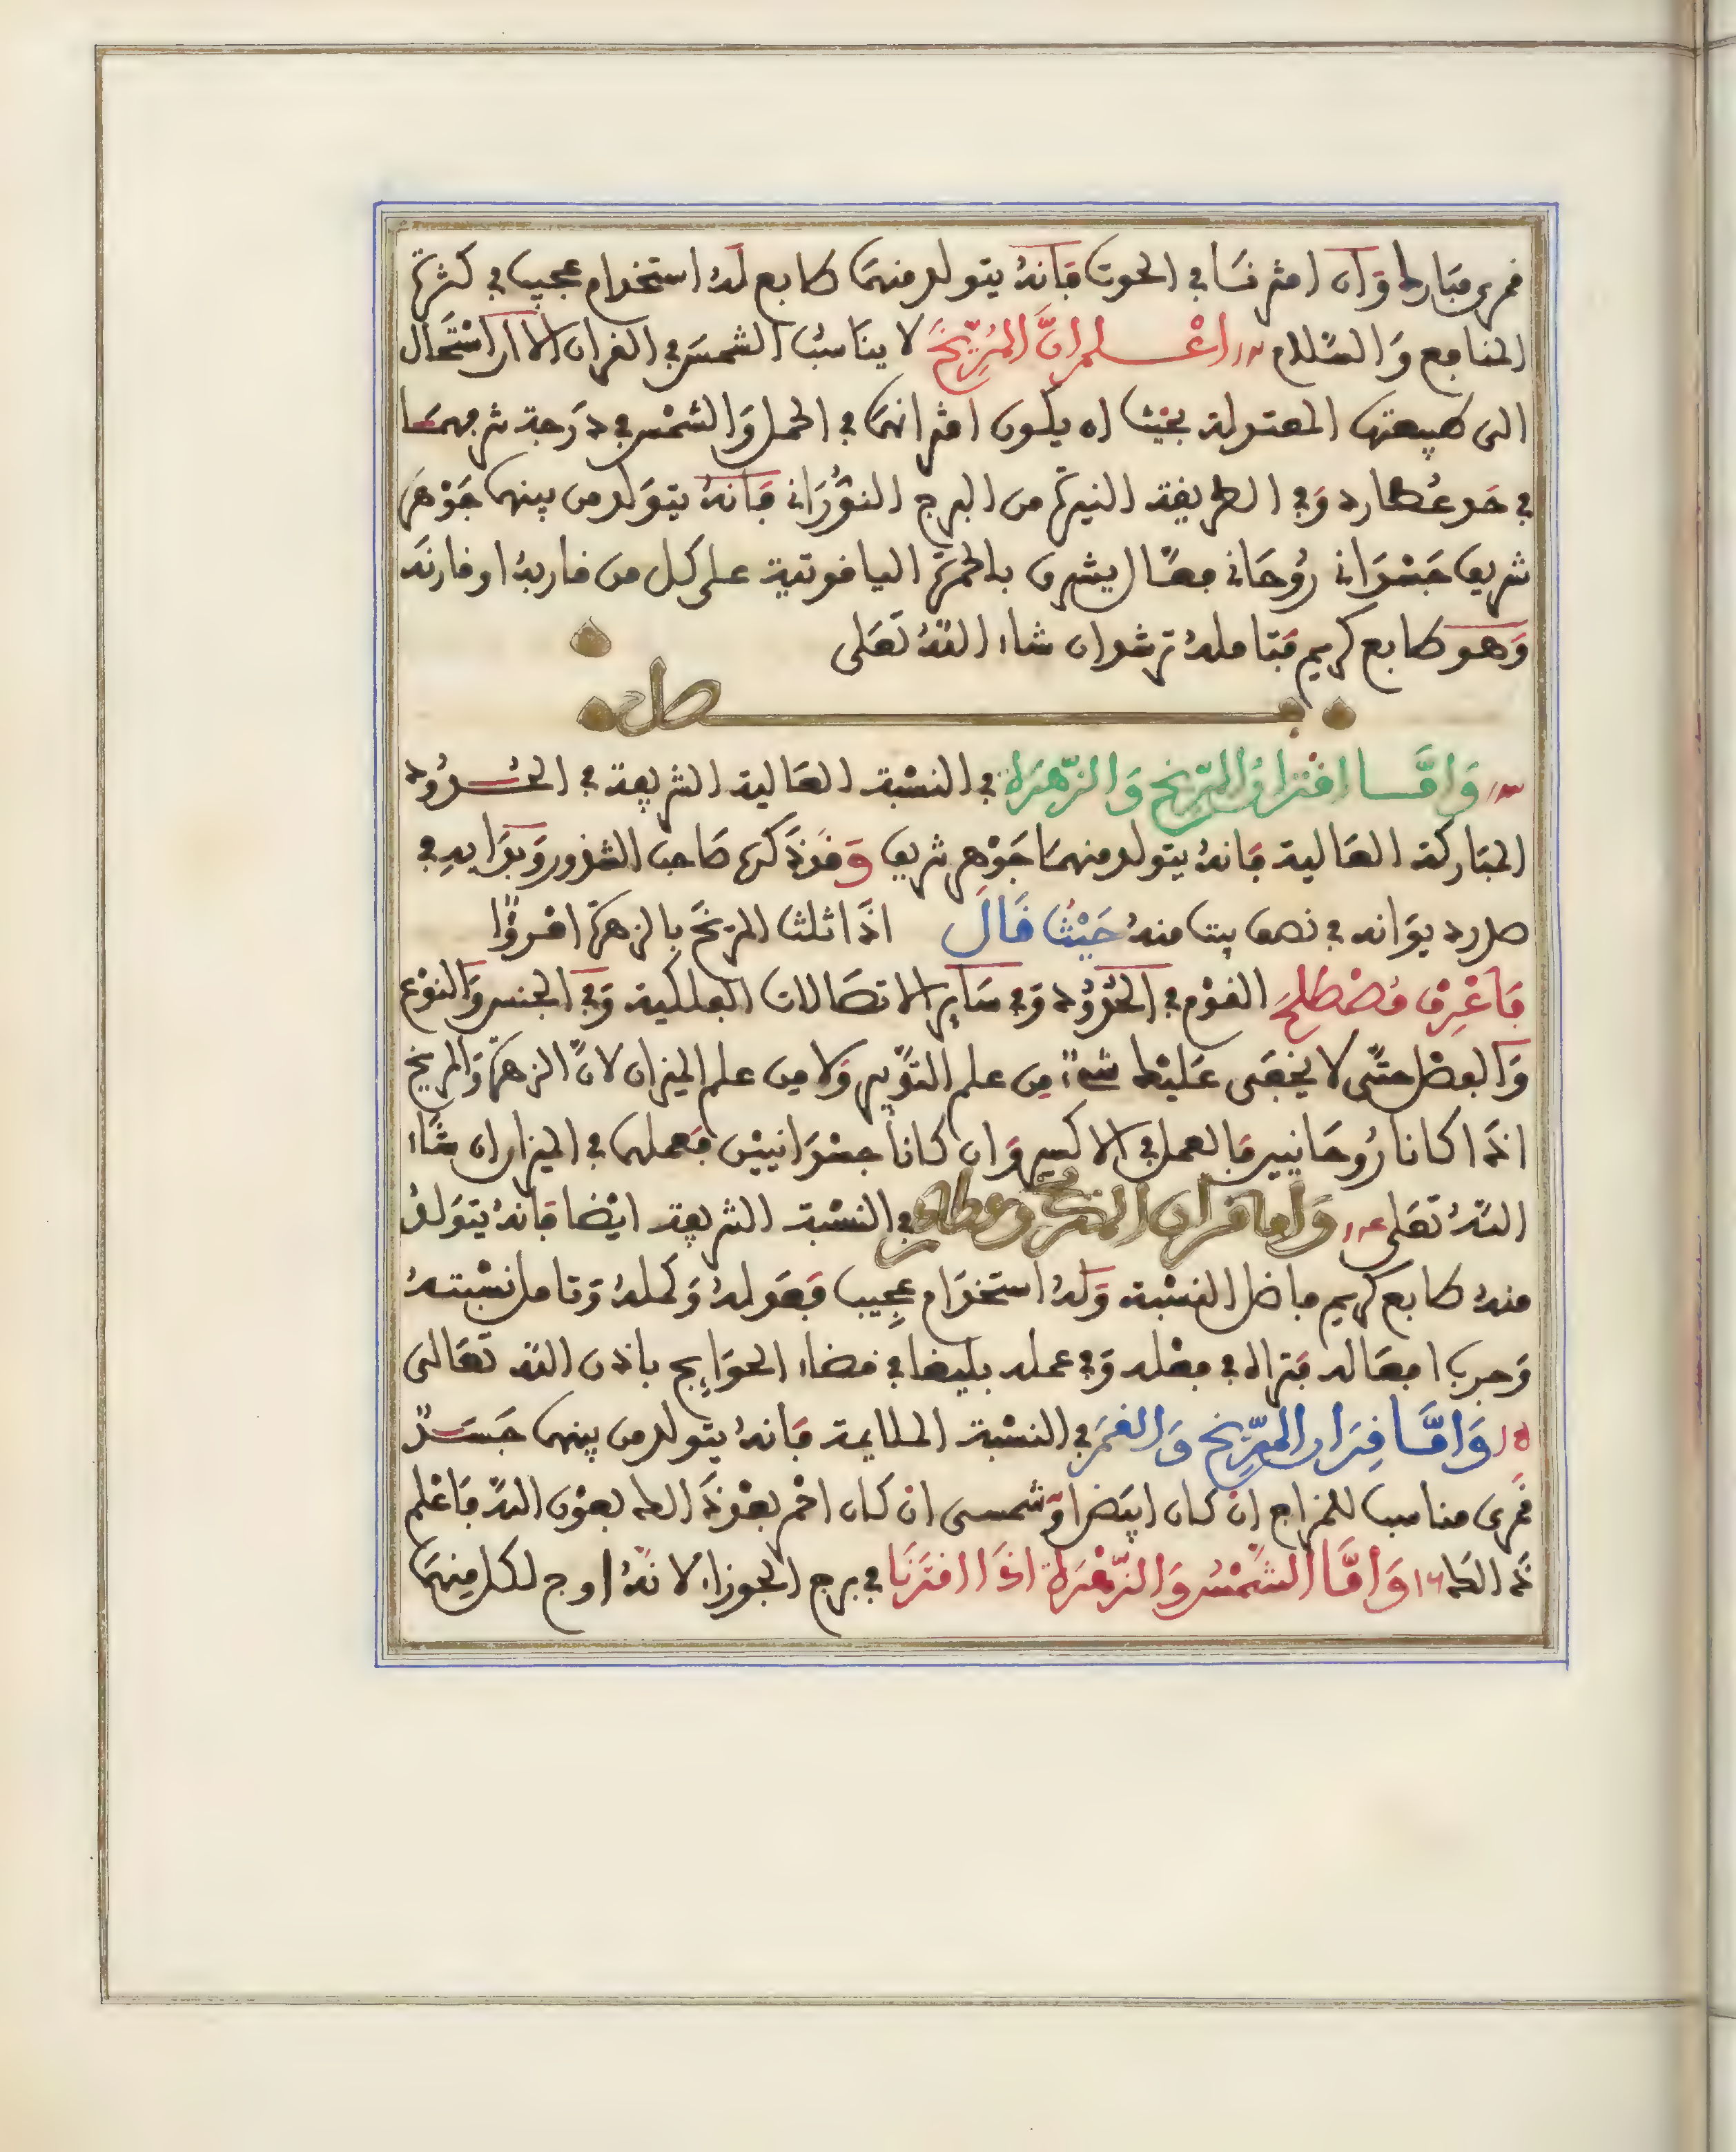 قمرى مبارك وان اقترنا في الحوت فانه يتولد منهما طابع له استخدام عجيب في كثرة
المنافع والسلام ١٢ اعلم ان المريخ لا يناسب الشمس في القران الا ان استحال
الى طبيعتها المعتدلة بحيث ان يكون اقترانهما في الحمل والشمس في درجة شرفهما
في حد عطارد وفي الطريقة النيرة من البرج النوراني فانه يتولد من بينهما جوهر
شريف جسداني روحاني فعال يشرق بالحمرة الياقوتية على كل من قاربه او قارنه
وهو طابع كريم فتامله ترشد ان شاء الله تعلى
فصل
١٣ واما اقتران المريخ والزهرة في النسبة العالية الشريفة في الحدود
المباركة العالية فانه يتولد منهما جوهر شريف وقد ذكره صاحب الشذور وبدا به في
صدر ديوانه في نصف بيت منه حيث قال اذا ثلث المريخ بالزهرة امرؤ
فاعرف مصطلح القوم في الحدود وفي ساير الاتصالات الفلكية وفي الجنس والنوع
والفصل حتى لا يخفى عليك شيء من علم التدبير ولا من علم الميزان لان الزهرة والمريخ
اذا كانا روحانيين فالعمل في الاكسير وان كانا جسدانيين فعملهما في الميزان ان شاء
الله تعلى ١٤ واما قران المريخ وعطارد في النسبة الشريفة ايضا فانه يتولد
منه طابع كريم فاضل النسبة وله استخدام عجيب فعدله وكمله وتامل نسبته
وجرب افعاله فتراه في فعله وفي عمله بليغا في قضاء الحوايج باذن الله تعالى
١٥ واما قران المريخ والقمر في النسبة الملايمة فانه يتولد من بينهما جسد
قمرى مناسب للمزاج ان كان ابيض او شمسى ان كان احمر بعد ذالك بعون الله فاعلم
ذالك ١٦ واما الشمس والزهرة اذا اقترنا في برج الجوزاء لانه اوج لكل منهما